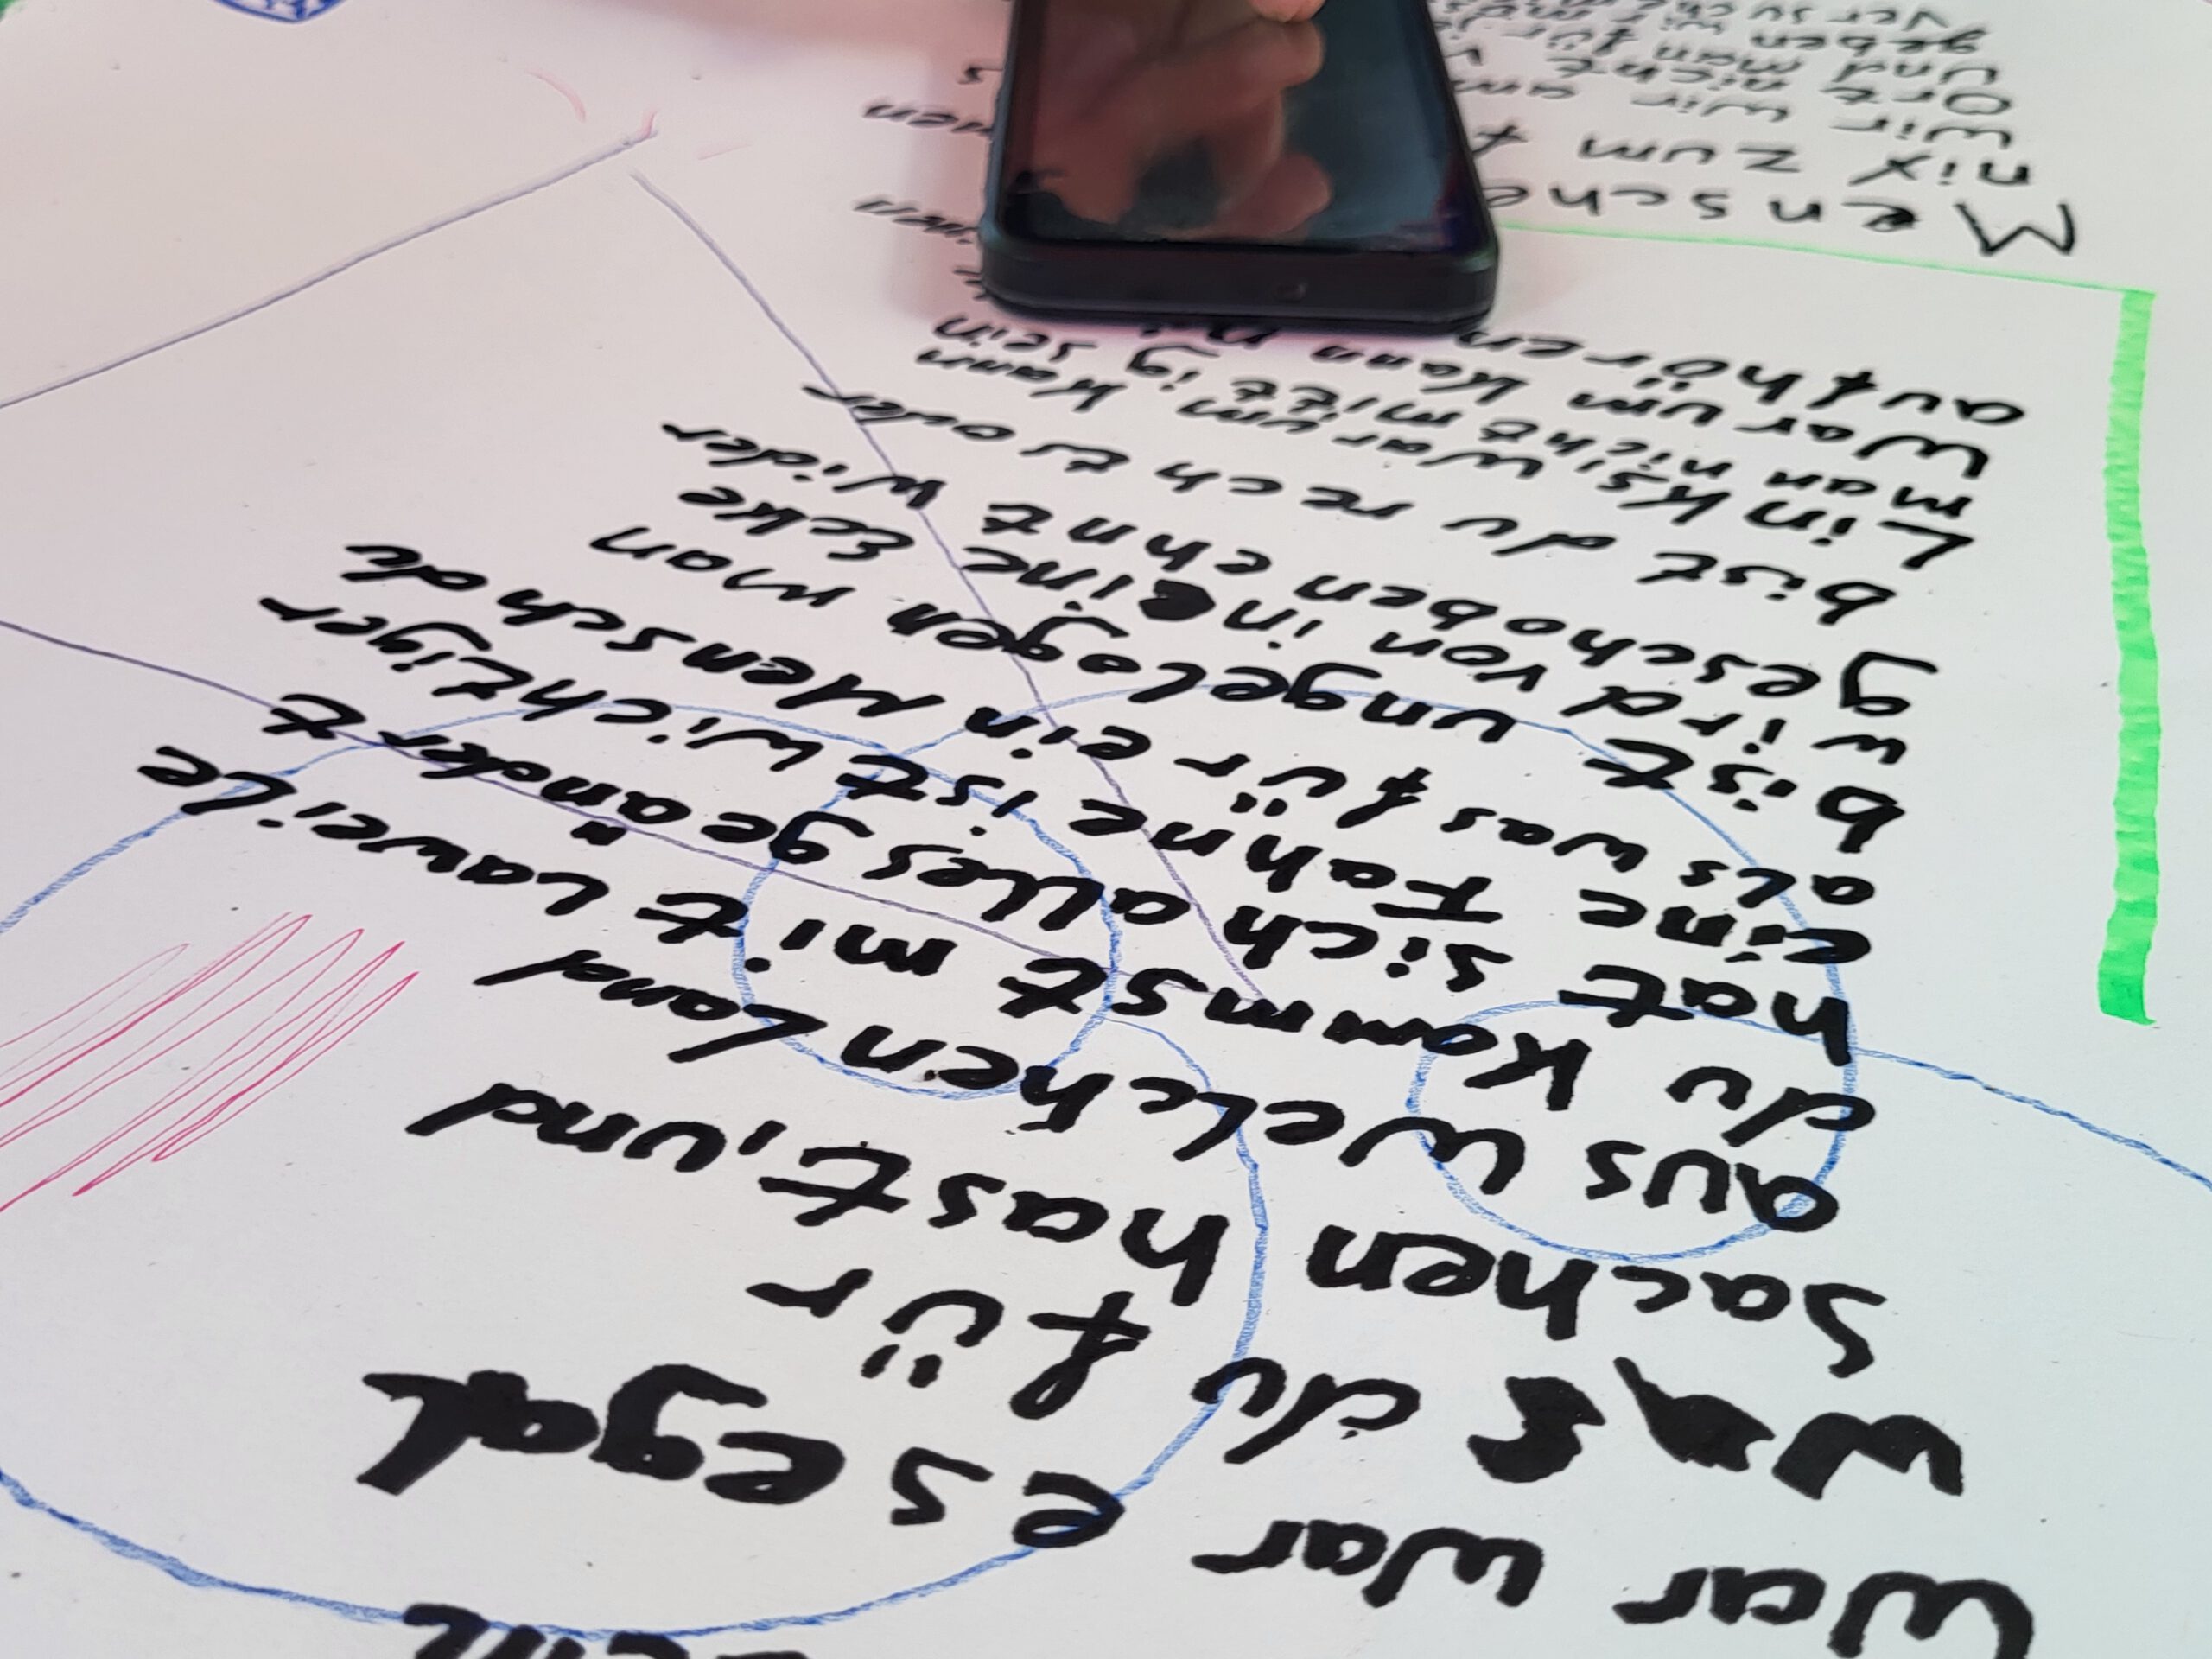 War war es egal
was du für
Sachen hast, und
aus welchen Land
du kommst mit Laweile
hat sich alles geändert
eine Fahne ist wichtiger
als was für ein Mensch du
bist ungelogen man
wird von in eine Ecke
geschoben ehnt wider
bist du rechts oder
Links, warum kann
man nicht mittig sein
warum kann
aufhören
nix zum
wir
Ort nicht
und man für
geben